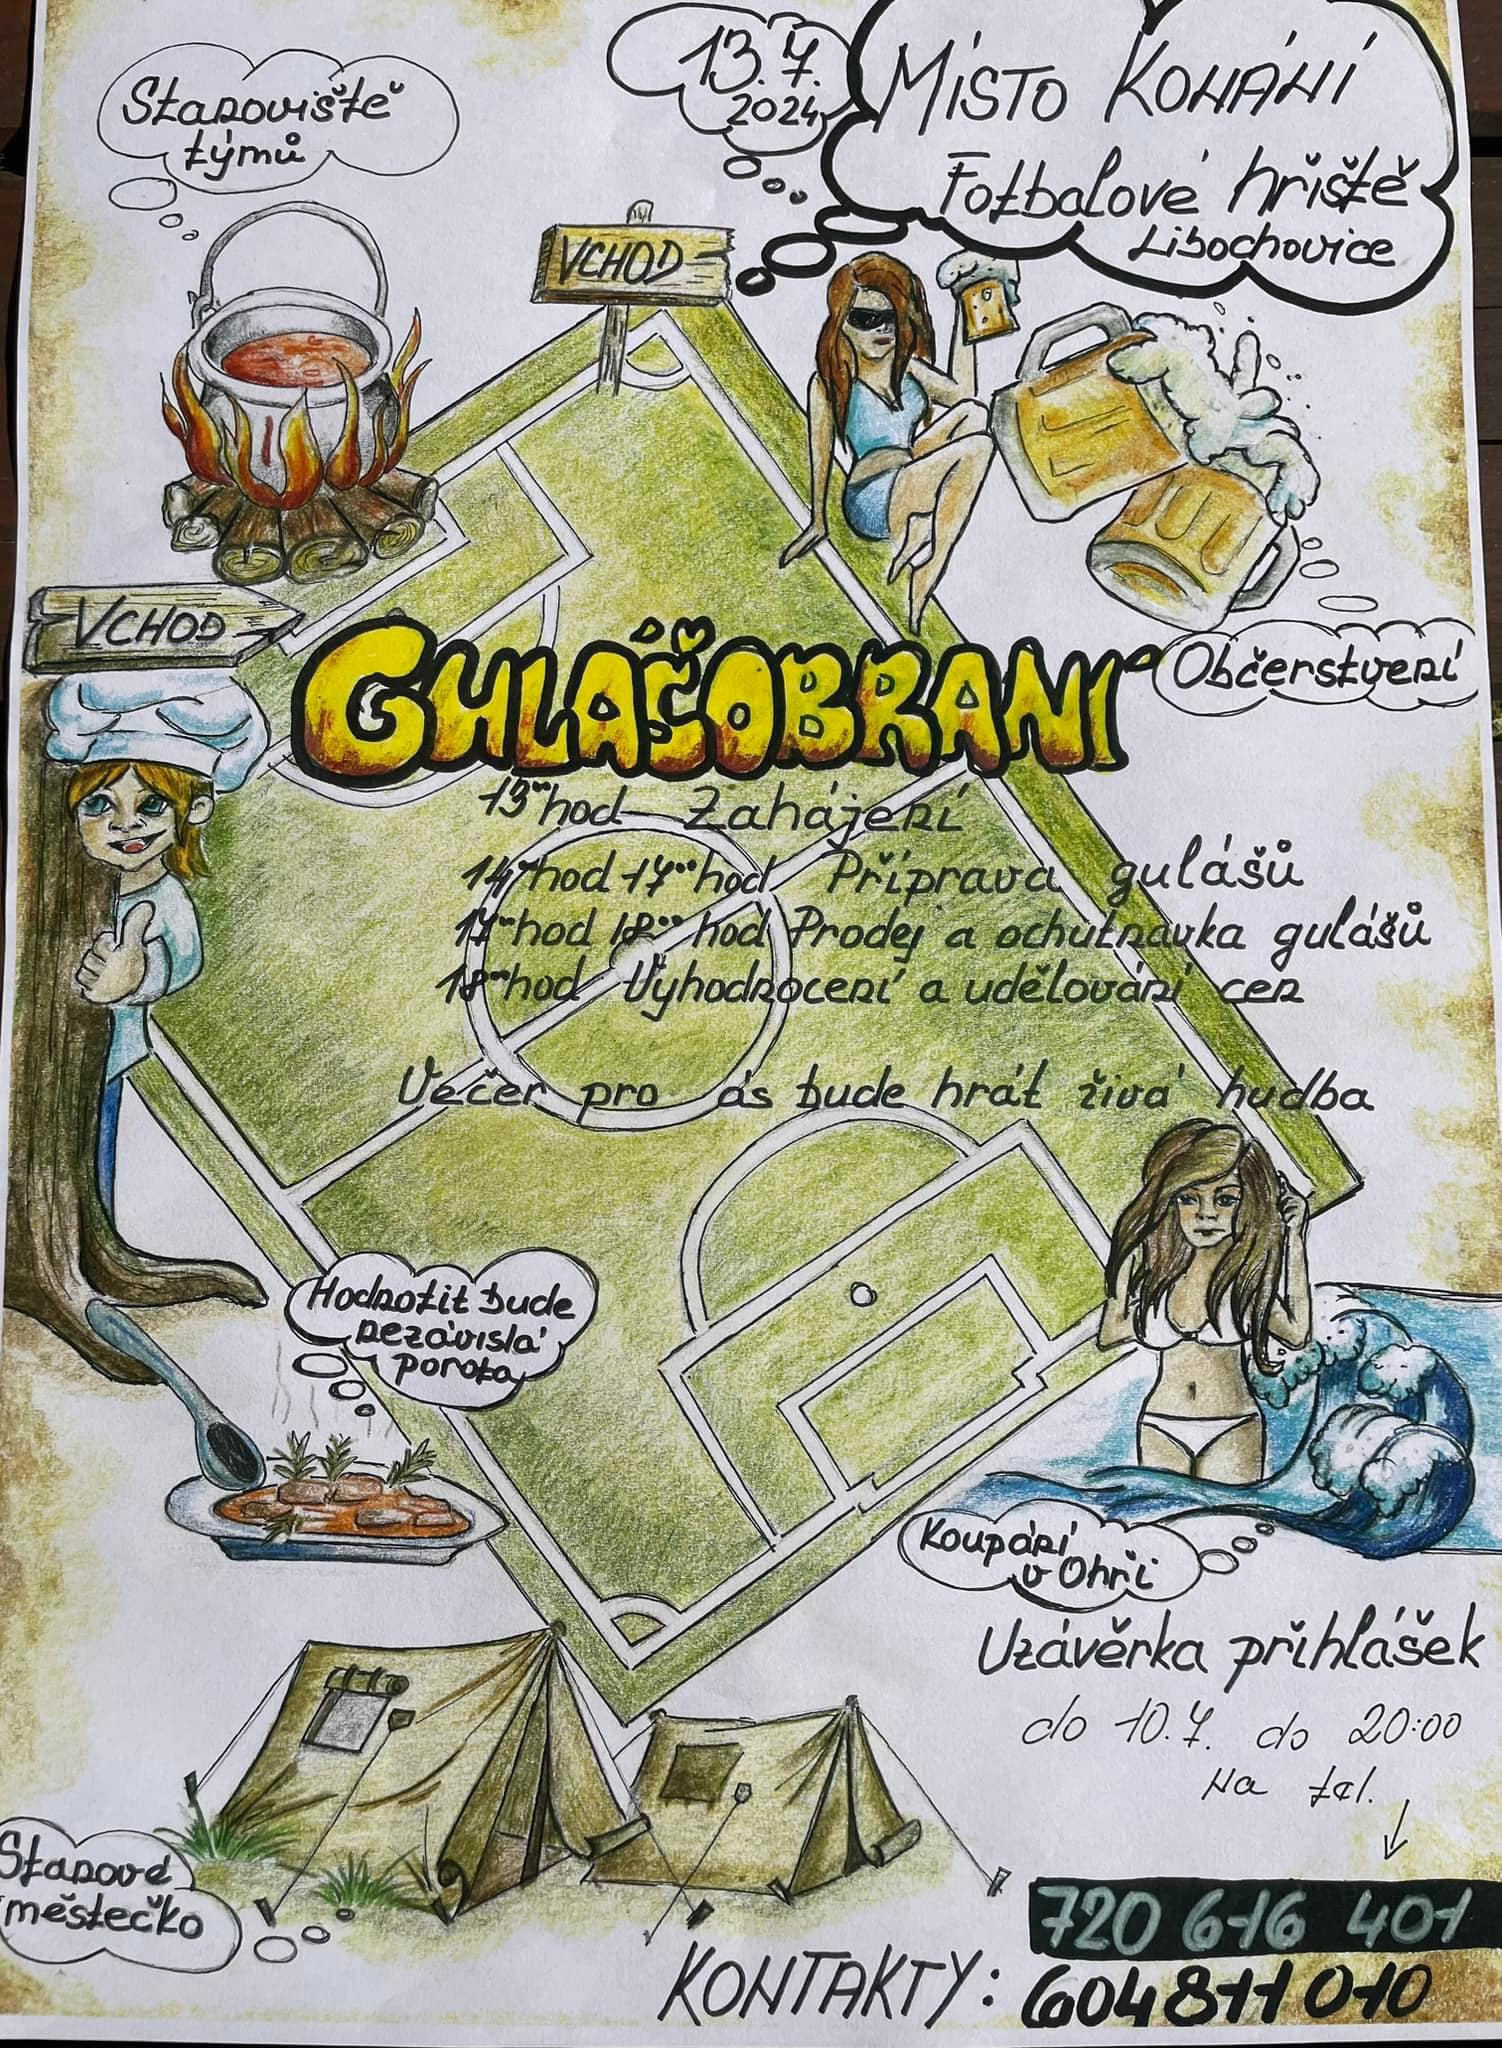 Stanoviště
týmů
13.7.
2024
Místo Konání
Fotbalové hřiště
Libochovice
VCHOD
VCHOD
Občerstvení
GULÁČOBRANÍ
13⁰⁰hod Zahájení
14⁰⁰hod-17⁰⁰hod Příprava gulášů
17⁰⁰hod 18⁰⁰ hod Prodej a ochutnávka gulášů
18⁰⁰hod Vyhodnocení a udělování cen
Večer pro ás bude hrát živá hudba
Hodnotit bude
nezávislá
porota
Koupání
v Ohři
Uzávěrka přihlášek
do 10.7. do 20:00
na tel.
Stanové
městečko
720 616 401
KONTAKTY: 604811010